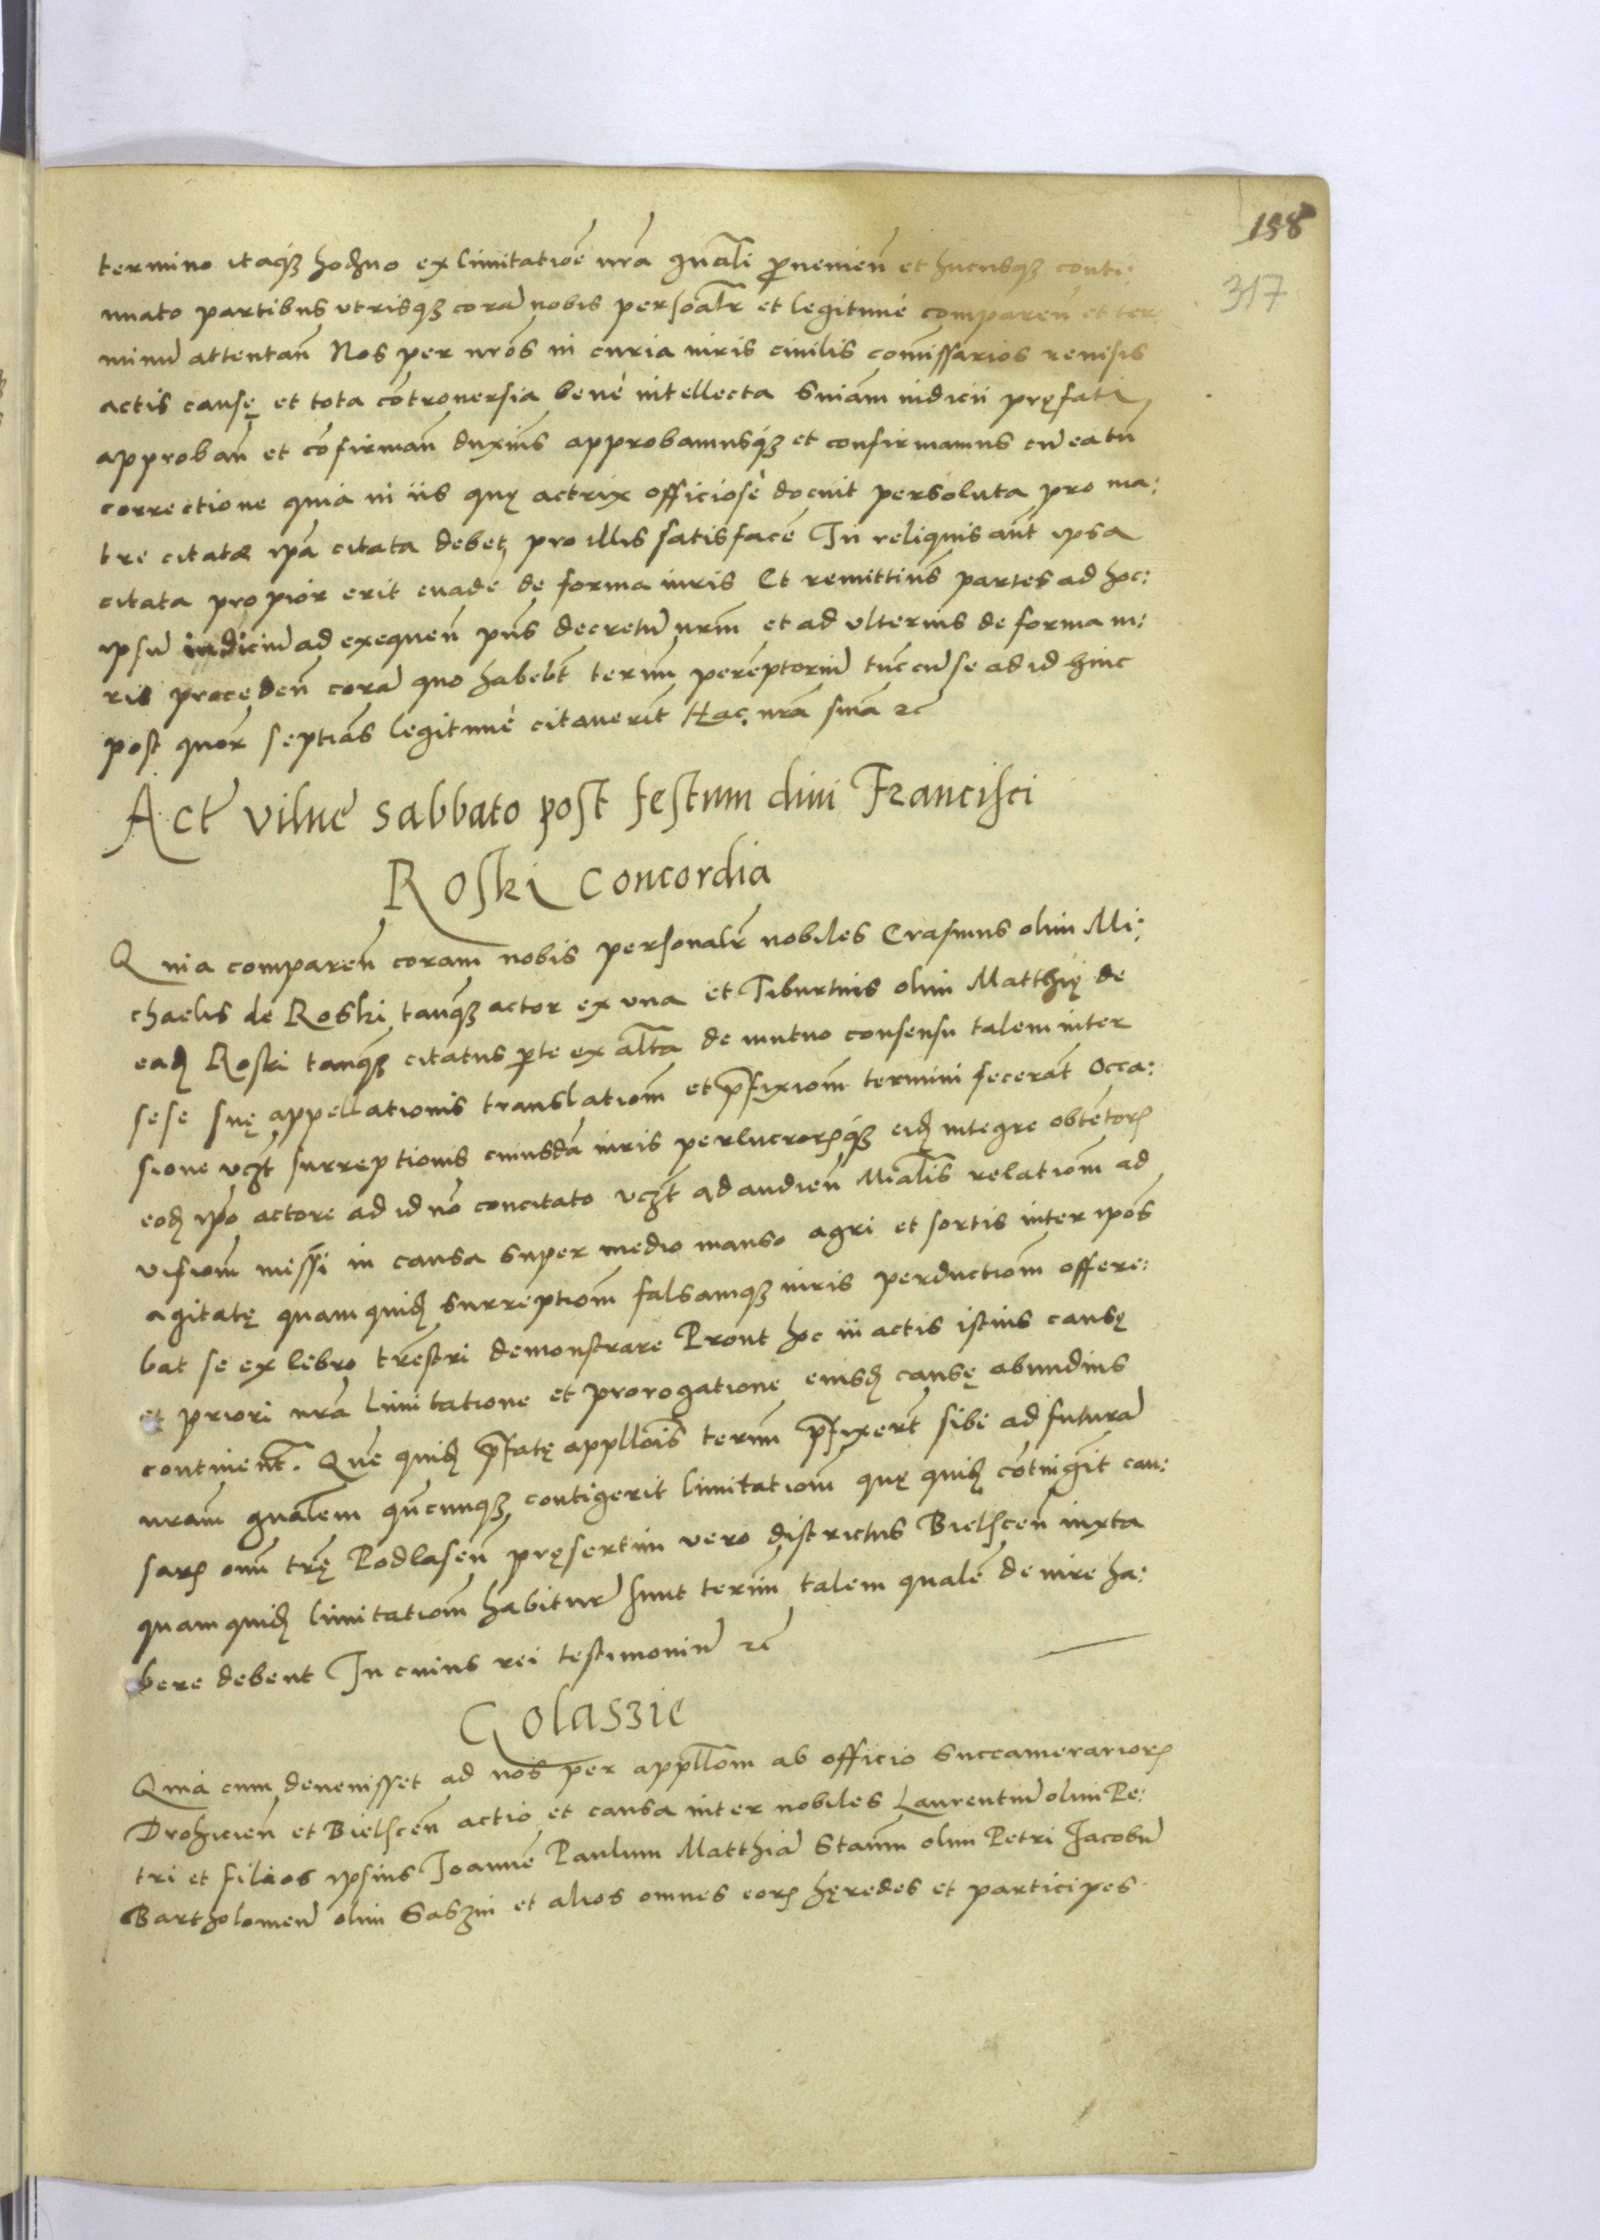 158
317
termino itaq3 hodno ex limitatioe nra gnali proveniem et hucusq3 conti:
nuato partibus utrisq3 cora nobis persoalr et legitime comparen et ter
minu attentan Nos per nros in curia iuris civilis comissarios revisis
actis causę et tota controversia bene intellecta Sniam iudicii pręfati
approban et confirman duxims approbamusq3 et confirmamus cu ea tn
correctione quia in iis quę actrix officiose docuit persoluta pro ma:
tre citatæ ipa citata debet pro illis satisface In reliquis aut ipsa
citata propior erit evade de forma iuris Et remittims partes ad hoc:
ipsu iudiciu ad exequen pns decretu nrm et ad ulterius de forma iu:
ris proceden cora quo habebt termi peremptoriu tunc cu se ad id hinc
post quor septias legitime citaverit Hac nra snia etc
Act Vilne Sabbato post festum divi Francisci
Roski Concordia
Quia comparen coram nobis personalr nobiles Erasmus olim Mi:
chaelis de Roski tanq3 actor ex una et Tiburtius olim Matthię de
ead Roski tanq3 citatus prte ex alta de mutuo consensu talem inter
sese suę appellationis translatiom et prfixiom termini fecerat Occa:
sione vczt surreptionis cuiusda iuris perlucrorq3 eid integre obtentor
eod ipo actore ad id no concitato vczt ad audien Mialis relatiom ad
visiom messi in causa super medio manso agri et sortis inter ipos
agitatę quam quid surreptiom falsamq3 iuris perductiom offere:
bat se ex libro trestri demonstrare Prout hoc in actis istius causę
et priori nra limitatione et prorogatione eiusd causę abundius
continent. Que quid prfatę appllois termi prfixert sibi ad futura
nram gnalem quncunq3 contigerit limitatiom quę quid contingit cau:
sar oim trę Podlasen pręsertim vero districtus Bielscen iuxta
quam quid limitatiom habitur sunt termi talem quale de iure ha:
bere debent In cuius rei testimoniu etc
Golaszie
Quia cum devenisset ad nos per appllom ab officio Succamerarior
Drohicien et Bielscen actio et causa inter nobiles Laurentiu olim Pe:
tri et filios ipsius Joanne Paulum Matthia Stanm olim Petri Jacobu
Bartholomeu olim Saszin et alios omnes eor hęredes et participes